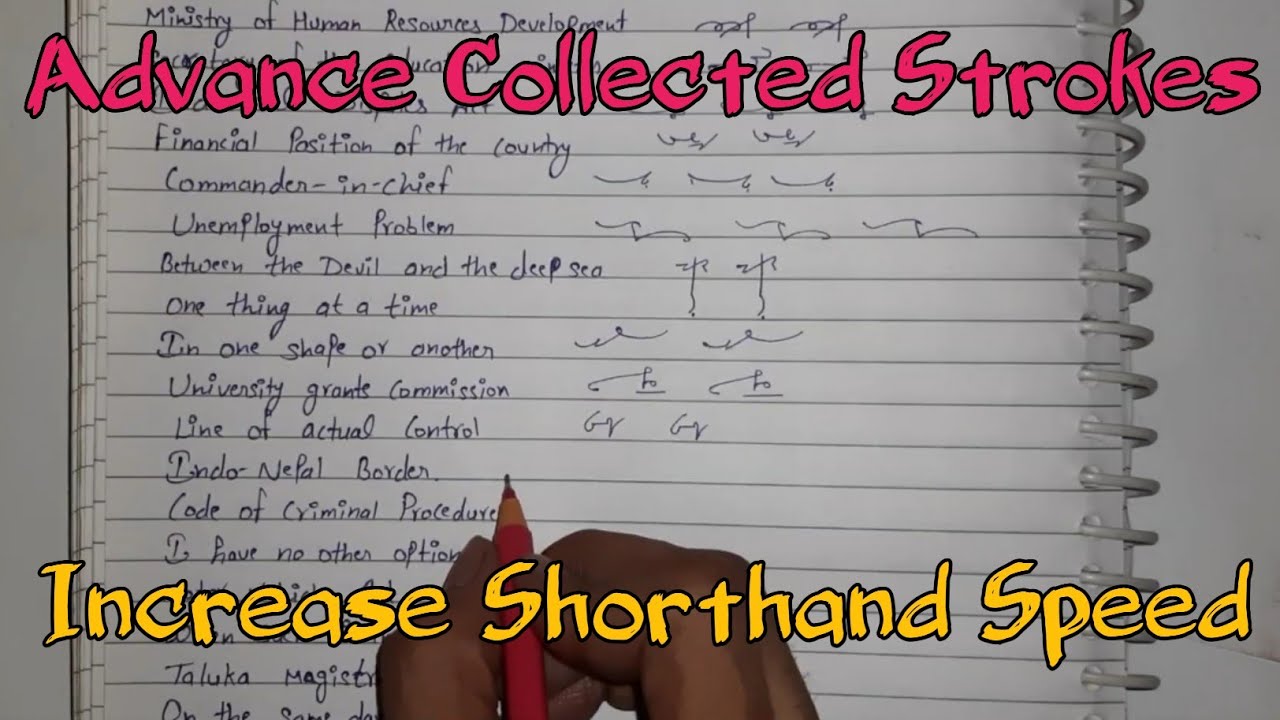 Ministry of Human Resources Development
Advance Collected Strokes
Financial Position of the country
Commander-in-chief
Unemployment Problem
Between the Devil and the deep sea
One thing at a time
In one shape or another
University grants Commission
Line of actual Control
Indo-Nepal Border.
Code of Criminal Procedure
I have no other option
Increase Shorthand Speed
Taluka
On the same